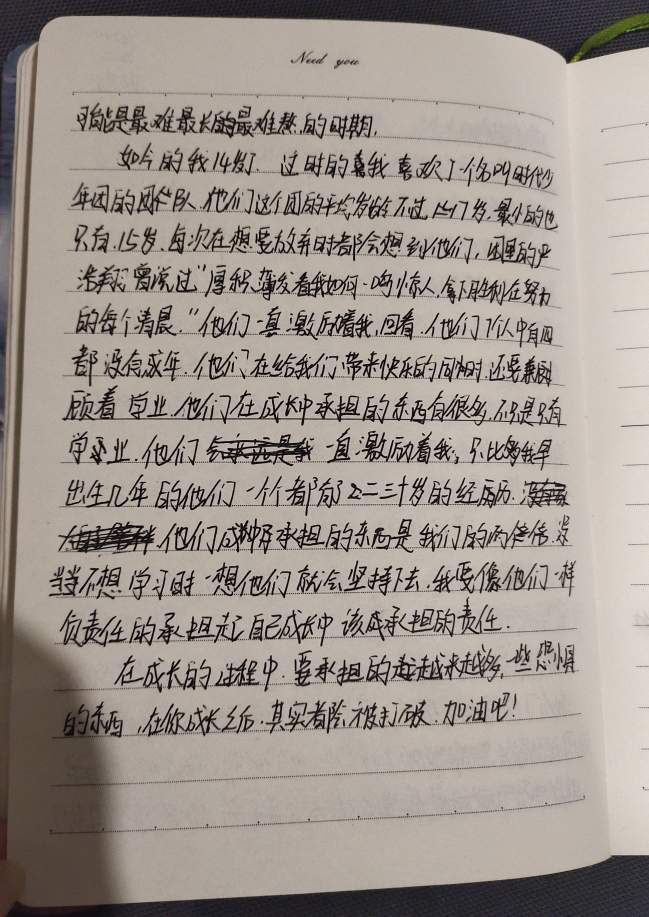 Need you
可能是最难最长的最难熬的时期,
如今的我14岁了. 过时的喜我喜欢了一个名叫时代少
年团的团体队,他们这个团的平均岁龄不过15 17岁,最小的也
只有.15岁.每次在想要放弃时都会想到他们,团里的严
浩翔曾说过"厚积薄发看我如何一鸣惊人,拿下胜利在努力
的每个清晨."他们一直激励着我,回看.他们7个人中有四
都没有成年.他们在给我们带来快乐的同时时.还要兼顾
顾着学业.他们在成长中承担的东西有很多,不只是只有
学业.他们一直激励着我,只比我早
出生几年的他们一个个都有了二三十岁的经历.
他们成承担的东西是我们的两倍倍.
当不想学习时一想他们就会坚持下去.我要像他们一样
负责任的承担起自己成长中该成承担的责任.
在成长的过程中.要承担的越来越多,一些恐惧
的东西,在你成长之后.其实都除被打破.加油吧!